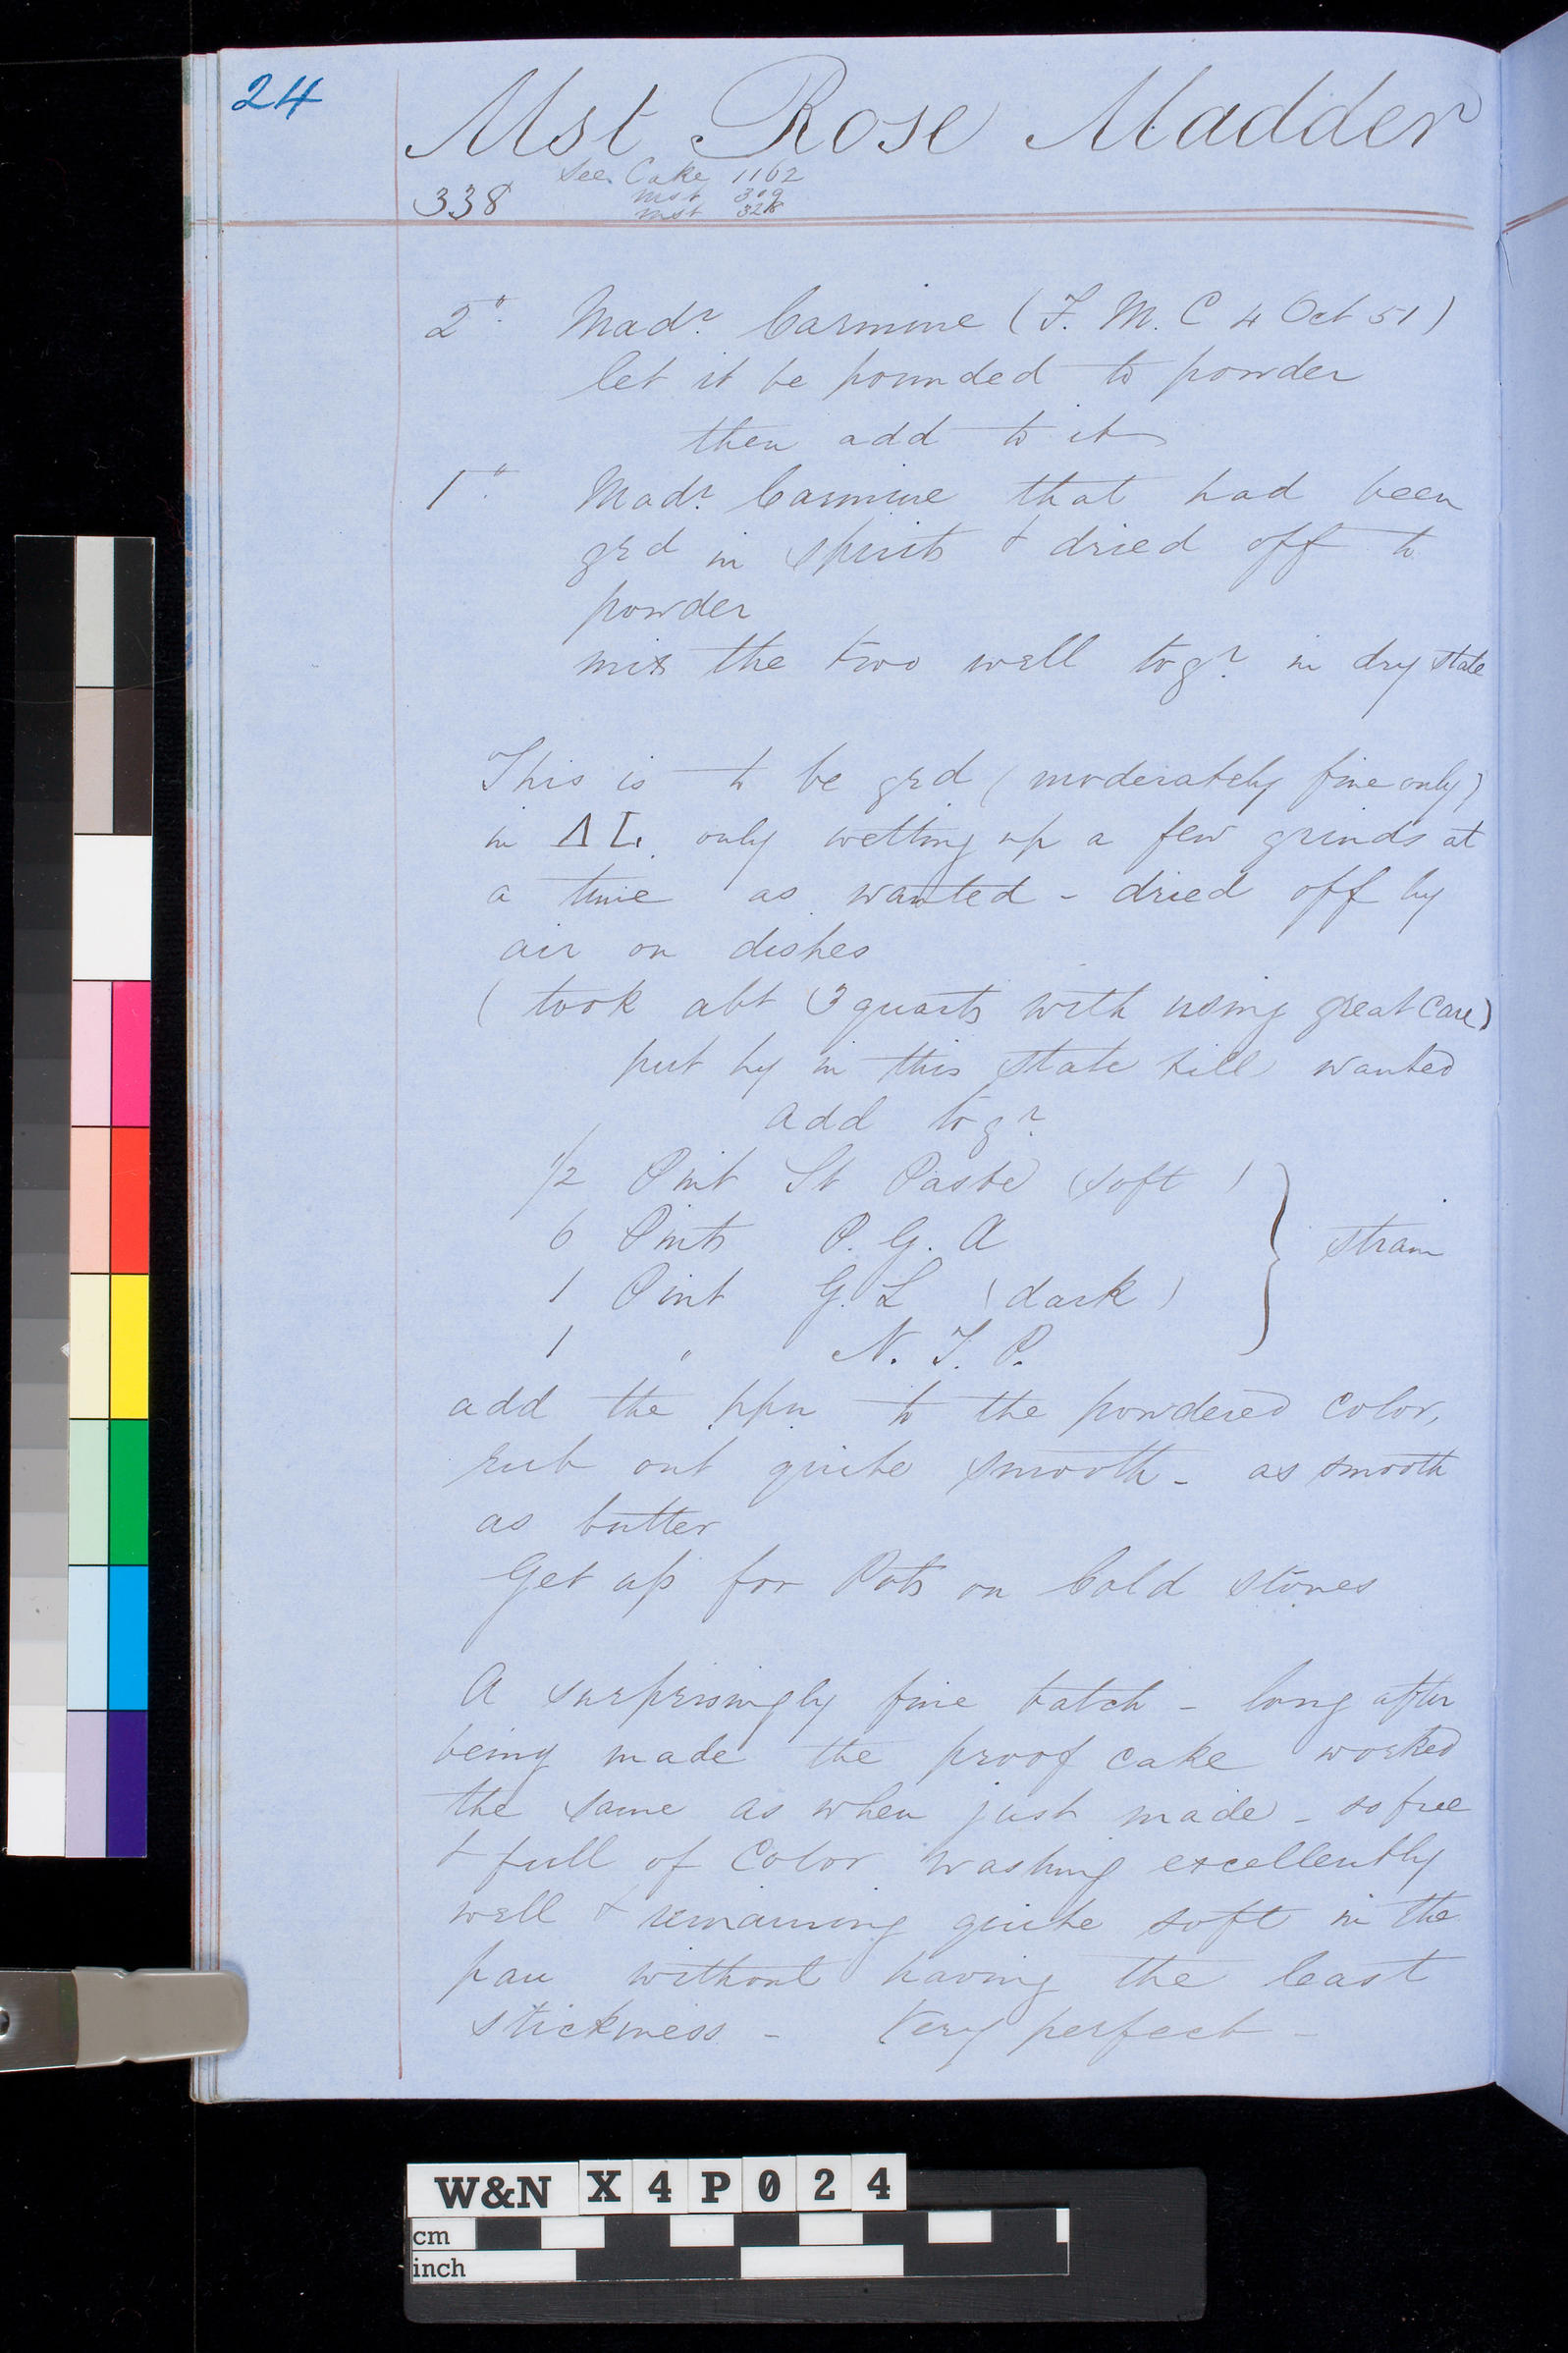 24
Mst Rose Madder
See Cake 1162
338 mst 309
mst 328
2". Madr. Carmine (F. M. C 4 Oct 51)
let it be pounded to powder
then add to it
1". Madr. Carmine that had been
grd in spirits & dried off to
powder
mix the two well togr. in dry state
This is to be grd (moderately fine only)
in ΔL. only wetting up a few grinds at
a time as wanted - dried off by
air on dishes
(took abt 3 quarts with using great care)
put by in this state till wanted
add togr.
1/2 Pint St Paste (soft)
6 Pints P. G. A strain
1 Pint G. L (dark)
1 " N. T. P.
add the ppn to the powdered color,
rub out quite smooth - as smooth
as butter
Get up for Pots on Cold stones
A surprisingly fine batch - long after
being made the proof cake worked
the same as when just made - so free
& full of color washing excellently
well & remaining quite soft in the
pan without having the least
stickiness - Very perfect -
W&N X4P024
cm
inch